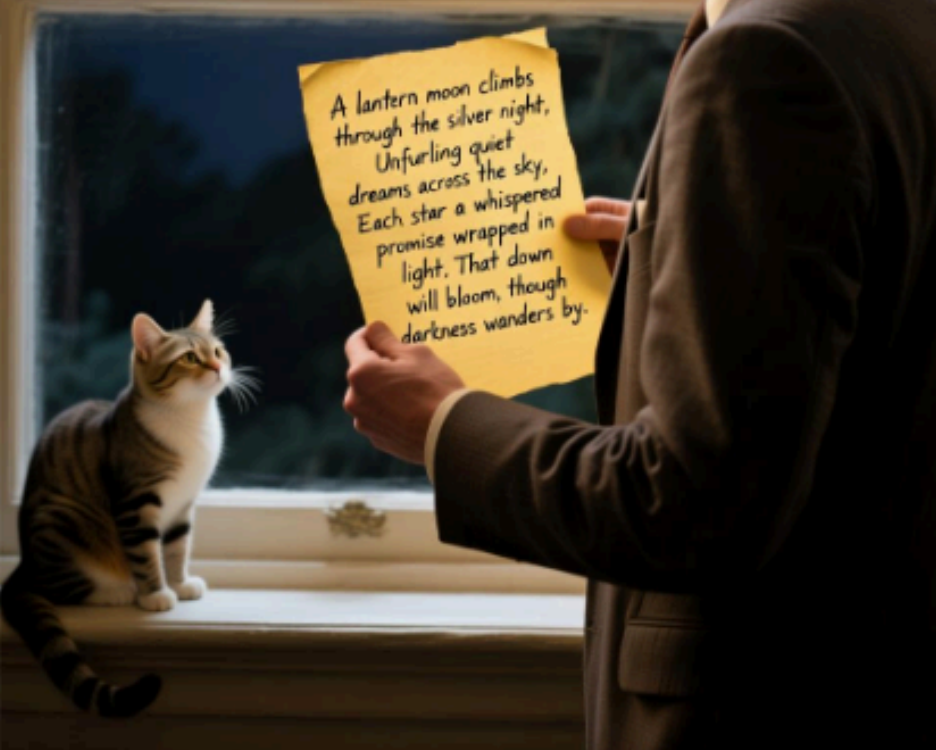 A lantern moon climbs
through the silver night,
Unfurling quiet
dreams across the sky,
Each star a whispered
promise wrapped in
light. That dawn
will bloom, though
darkness wanders by.